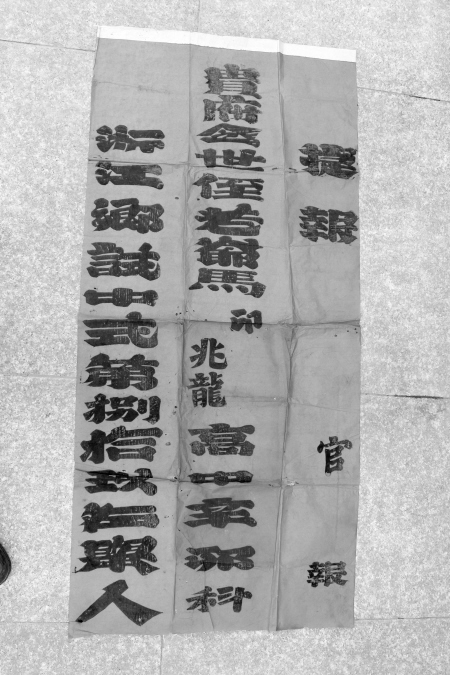 捷報 官報
貴府令世侄老爺馬印兆龍高中辛卯科
浙江鄉試中式第捌拾玖名舉人